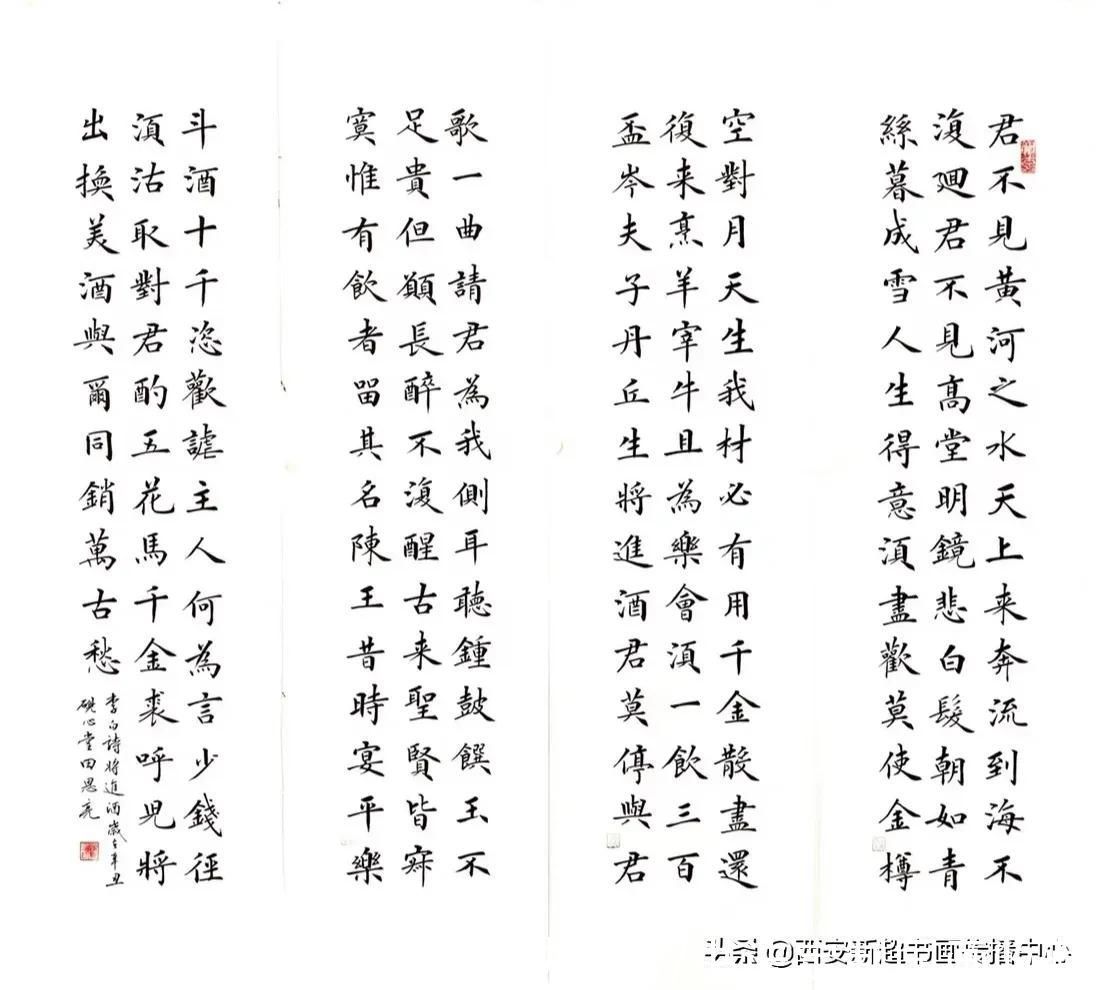 君不見黃河之水天上来奔流到海不
復廻君不見高堂明鏡悲白髮朝如青
絲暮成雪人生得意須盡歡莫使金樽
空對月天生我材必有用千金散盡還
復来烹羊宰牛且為樂會須一飲三百
盃岑夫子丹丘生將進酒君莫停與君
歌一曲請君為我側耳聽鍾鼓饌玉不
足貴但願長醉不復醒古来聖賢皆寂
寞惟有飲者留其名陳王昔時宴平樂
斗酒十千恣歡謔主人何為言少錢徑
須沽取對君酌五花馬千金裘呼児將
出換美酒與爾同銷萬古愁
李白詩將進酒歲在辛丑
硯心堂田思亮
头条 @西安新超书画传播中心